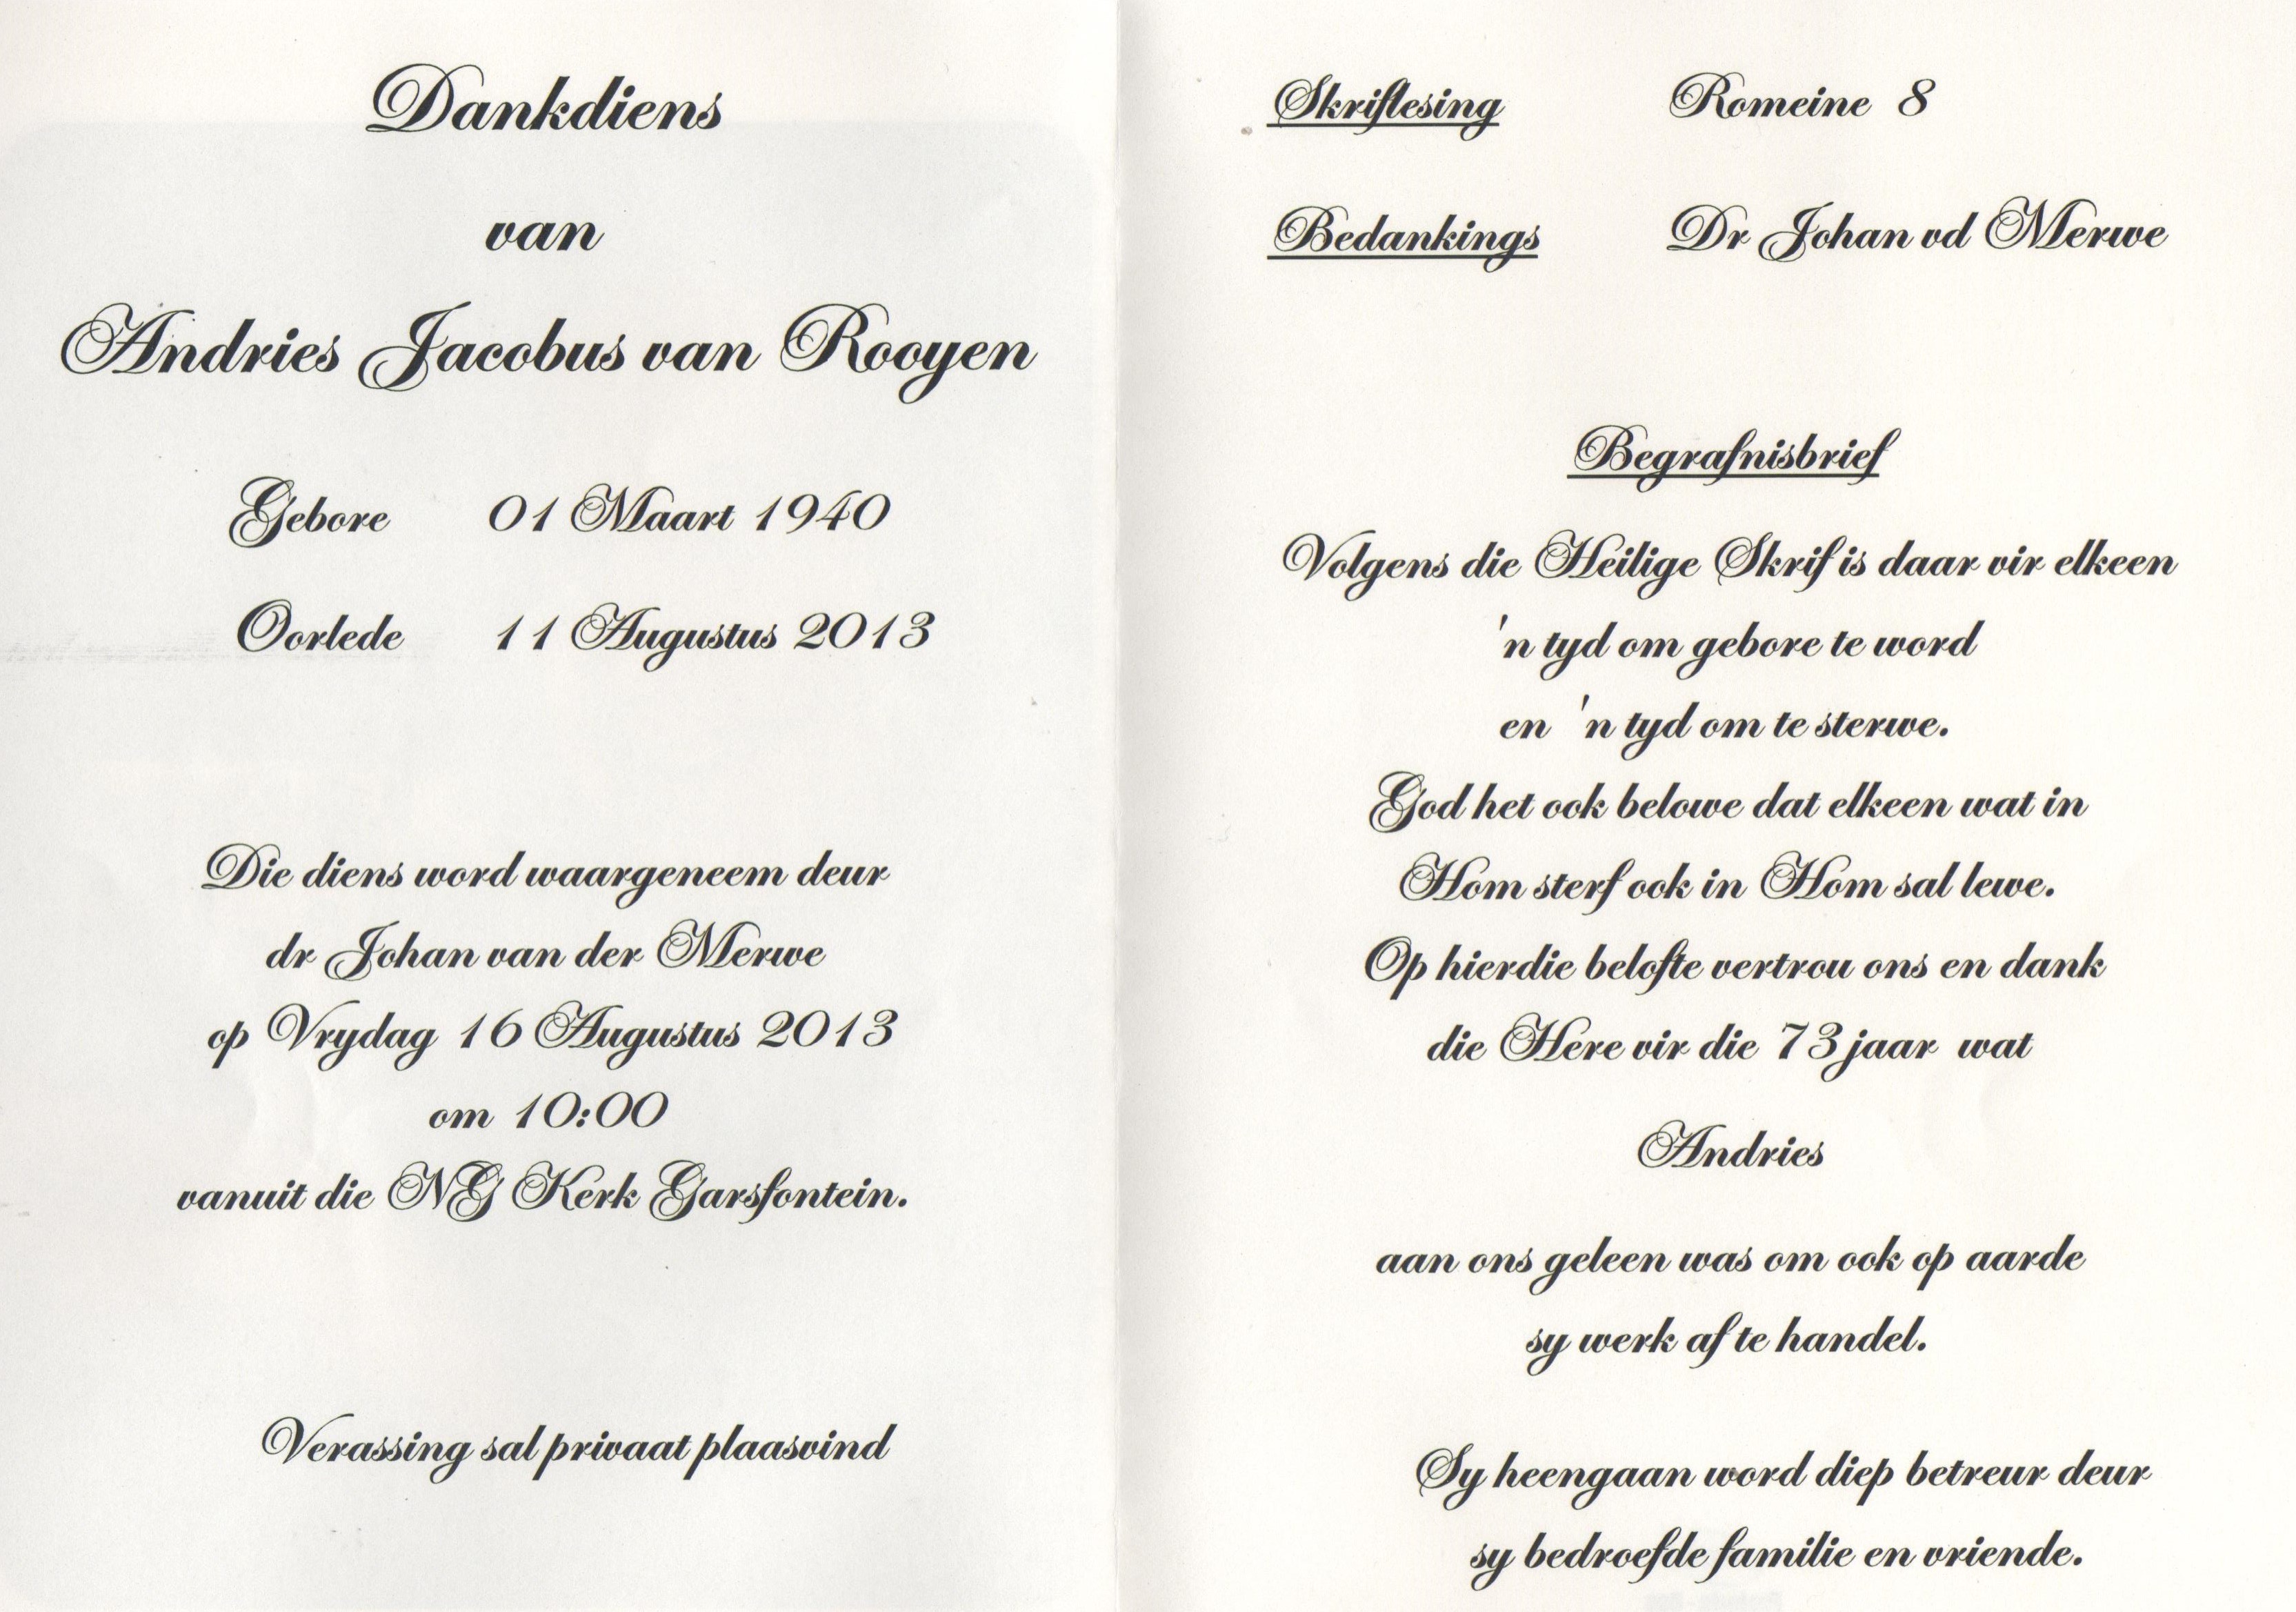 Dankdiens
van
Andries Jacobus van Rooyen
Gebore 01 Maart 1940
Oorlede 11 Augustus 2013
Die diens word waargeneem deur
dr Johan van der Merwe
op Vrydag 16 Augustus 2013
om 10:00
vanuit die NG Kerk Garsfontein.
Verassing sal privaat plaasvind
Skriflesing Romeine 8
Bedankings Dr Johan vd Merwe
Begrafnisbrief
Volgens die Heilige Skrif is daar vir elkeen
'n tyd om gebore te word
en 'n tyd om te sterwe.
God het ook belowe dat elkeen wat in
Hom sterf ook in Hom sal lewe.
Op hierdie belofte vertrou ons en dank
die Here vir die 73 jaar wat
Andries
aan ons geleen was om ook op aarde
sy werk af te handel.
Sy heengaan word diep betreur deur
sy bedroefde familie en vriende.